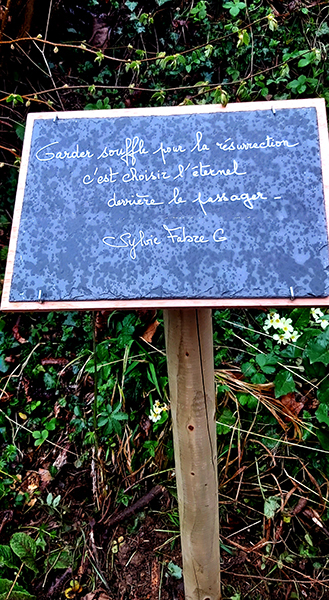 Garder souffle pour la résurrection
c'est choisir l'éternel
derrière le passager_
Sylvie Fabre G